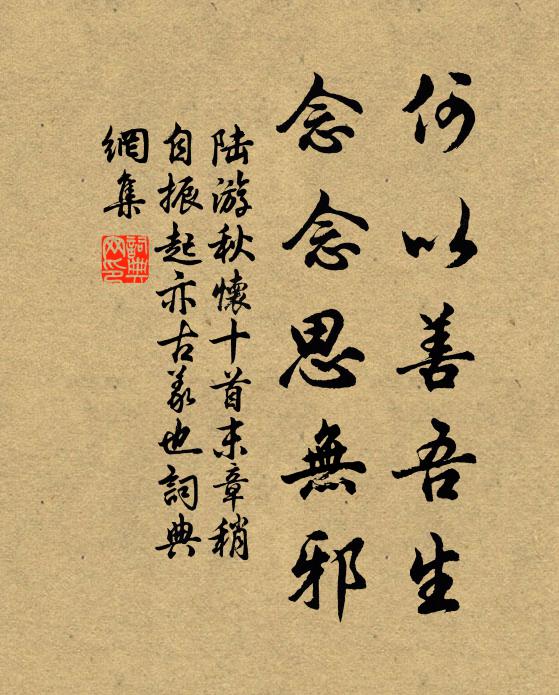 何以善吾生
念念思無邪
陆游秋懷十首末章稍
自振起亦古義也詞典
網集
詞典网印